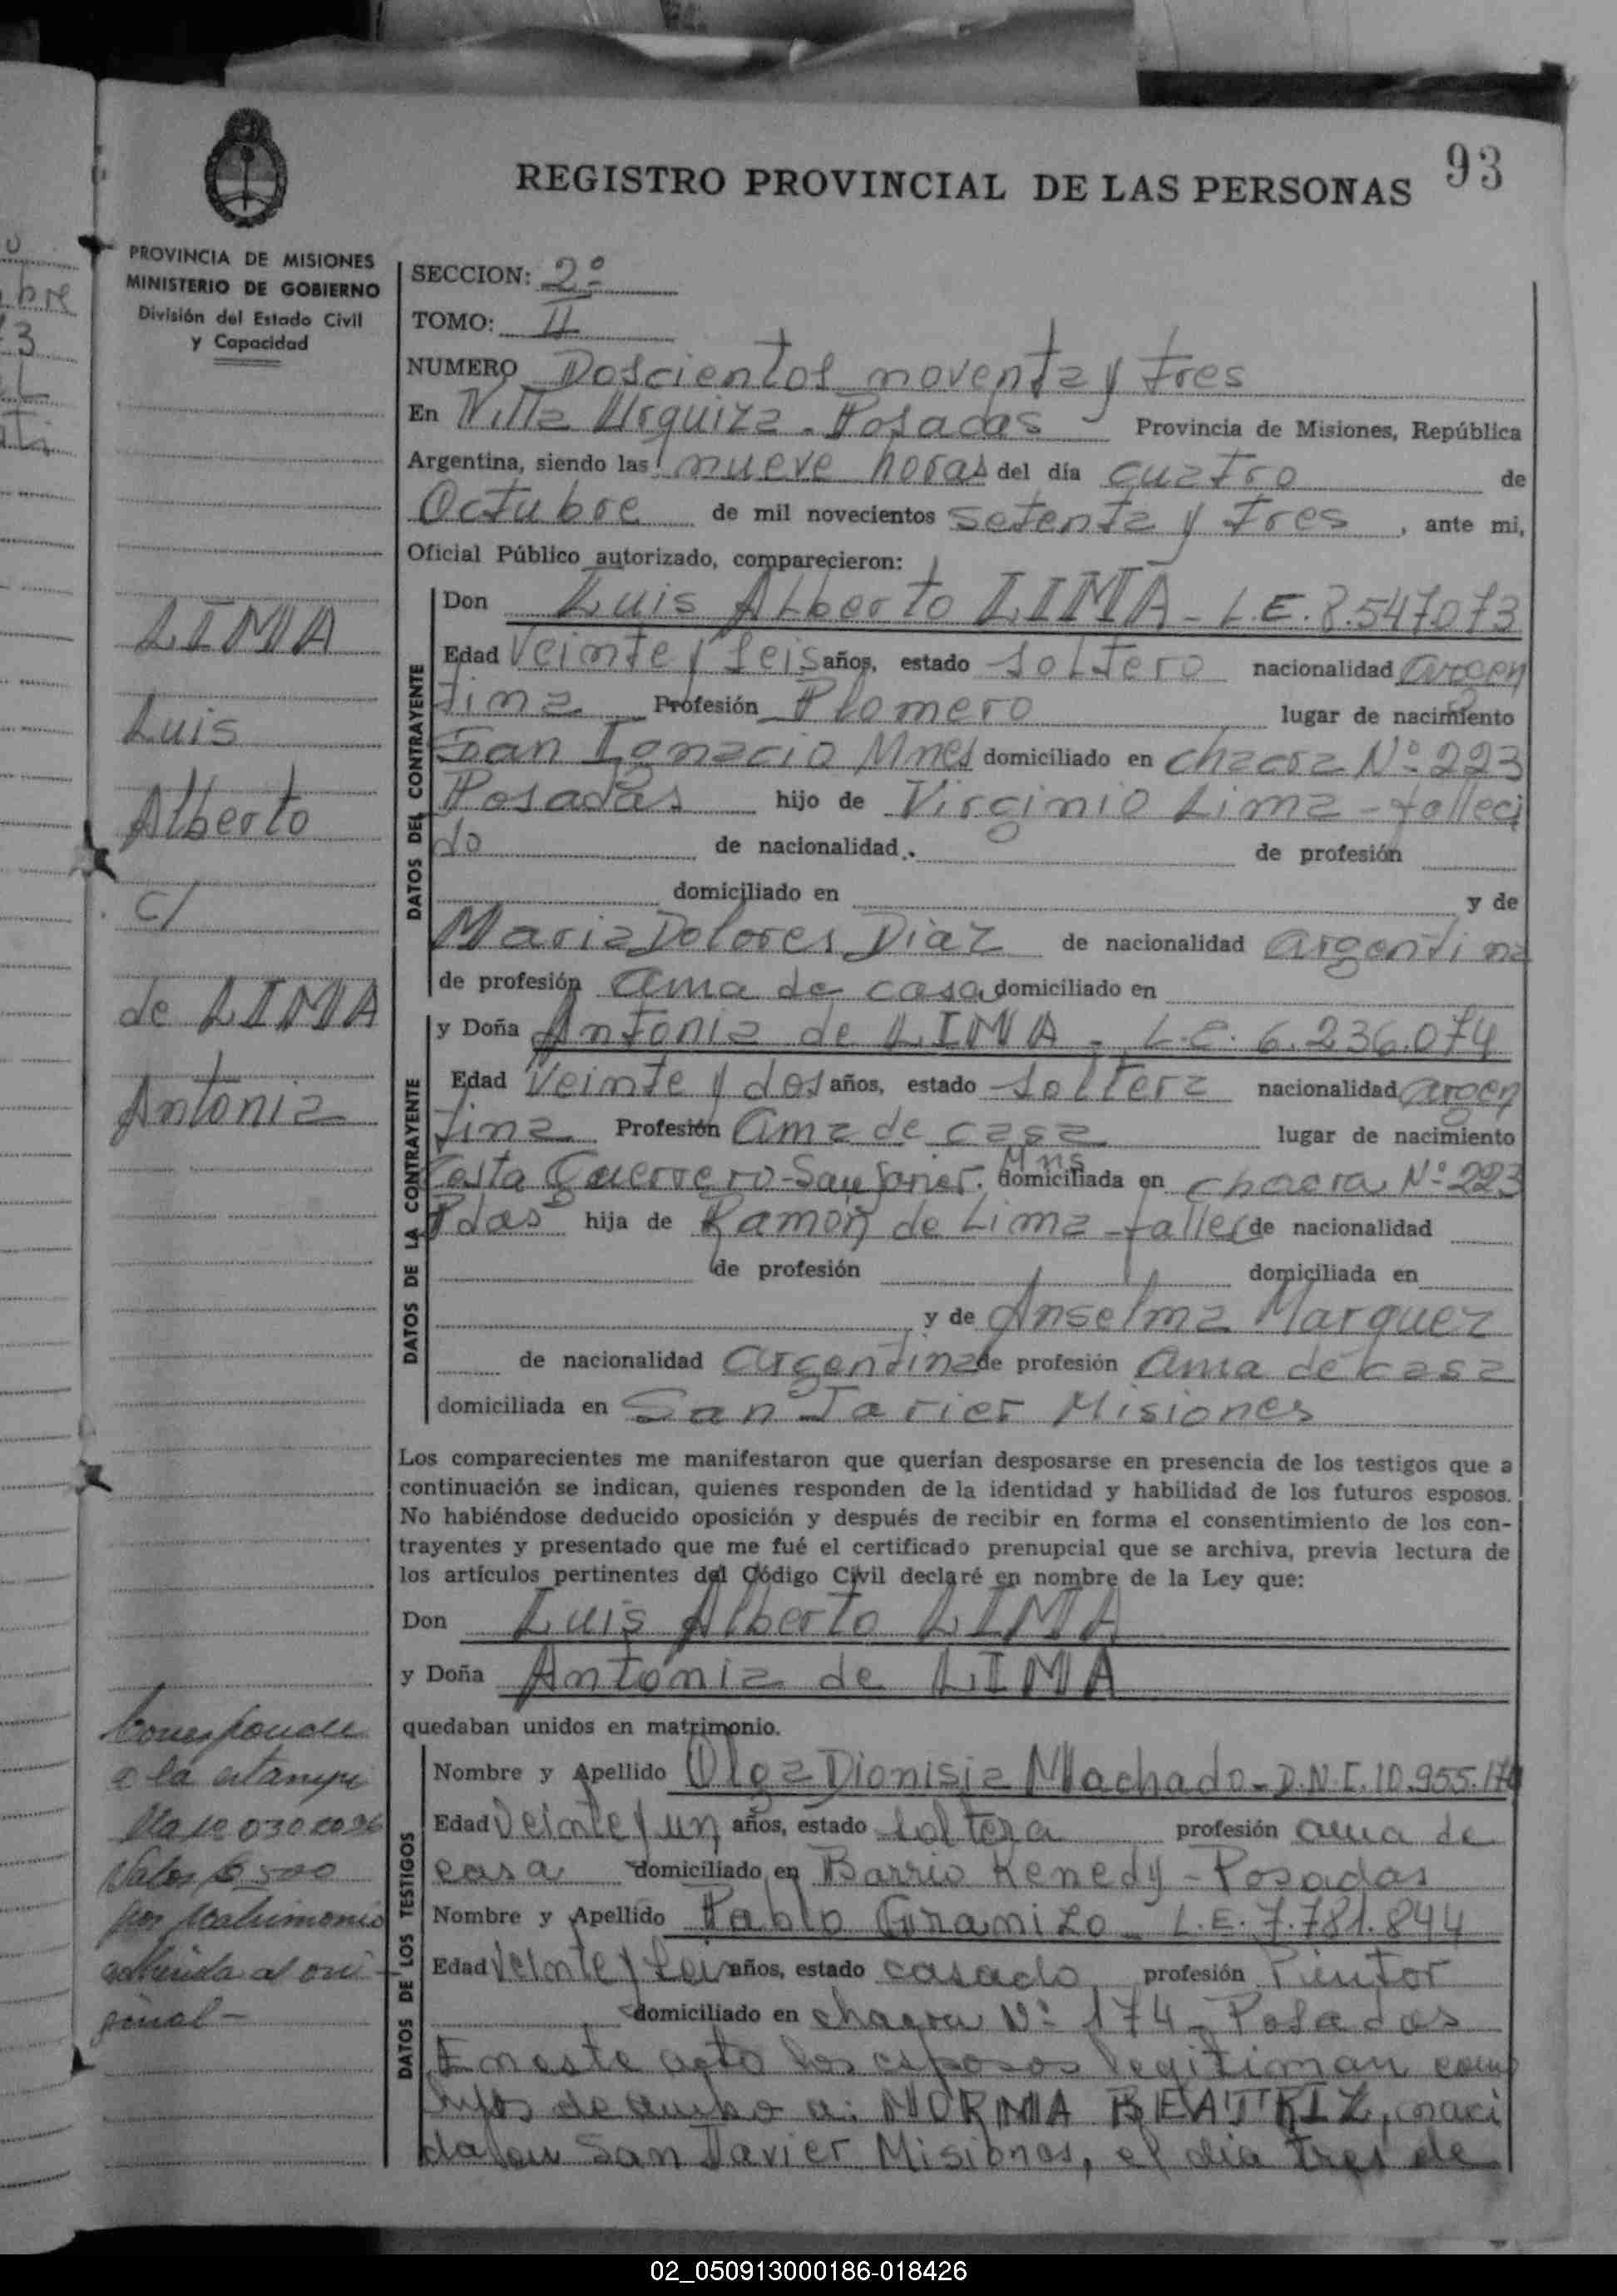 93
REGISTRO PROVINCIAL DE LAS PERSONAS
PROVINCIA DE MISIONES
MINISTERIO DE GOBIERNO
División del Estado Civil
y Capacidad
LIMA
Luis
Alberto
c/
de LIMA
Antonia
Corresponde
a la estampi
lla Nº
Valor $ 500
por matrimonio
adherida al ori-
ginal-
SECCION: 2º
TOMO: II
NUMERO Doscientos noventa y tres
En Villa Urquiza - Posadas Provincia de Misiones, República
Argentina, siendo las nueve horas del día cuatro de
Octubre de mil novecientos setenta y tres, ante mi,
Oficial Público autorizado, comparecieron:
DATOS DEL CONTRAYENTE
Don Luis Alberto LIMA - L.E. 8.547073
Edad Veinte y seis años, estado soltero nacionalidad argen
tina Profesión Plomero lugar de nacimiento
San Ignacio Mnes domiciliado en chacra Nº 223
Posadas hijo de Virginio Lima - falleci
do de nacionalidad de profesión
domiciliado en y de
Maria Dolores Diaz de nacionalidad argentina
de profesión ama de casa domiciliado en
DATOS DE LA CONTRAYENTE
y Doña Antonia de LIMA - L.C. 6.236.074
Edad Veinte y dos años, estado soltera nacionalidad argen
tina Profesión ama de casa lugar de nacimiento
Costa Guerrero - San Javier. Mns domiciliada en chacra Nº 223
Pdas hija de Ramon de Lima - fallec de nacionalidad
de profesión domiciliada en
y de Anselma Marquez
de nacionalidad argentina de profesión ama de casa
domiciliada en San Javier Misiones
Los comparecientes me manifestaron que querían desposarse en presencia de los testigos que a
continuación se indican, quienes responden de la identidad y habilidad de los futuros esposos.
No habiéndose deducido oposición y después de recibir en forma el consentimiento de los con-
trayentes y presentado que me fué el certificado prenupcial que se archiva, previa lectura de
los artículos pertinentes del Código Civil declaré en nombre de la Ley que:
Don Luis Alberto LIMA
y Doña Antonia de LIMA
quedaban unidos en matrimonio.
DATOS DE LOS TESTIGOS
Nombre y Apellido Olga Dionisia Machado - D.N.I. 10.955.
Edad Veinte y un años, estado soltera profesión ama de
casa domiciliado en Barrio Kenedy - Posadas
Nombre y Apellido Pablo Gramizo - L.E. 7.781.844
Edad Veinte y seis años, estado casado profesión Pintor
domiciliado en chacra Nº 174 - Posadas
En este acto los esposos legitiman como
hijos de ambo a: NORMA BEATRIZ, naci
da en San Javier Misiones, el dia tres de
02_050913000186-018426